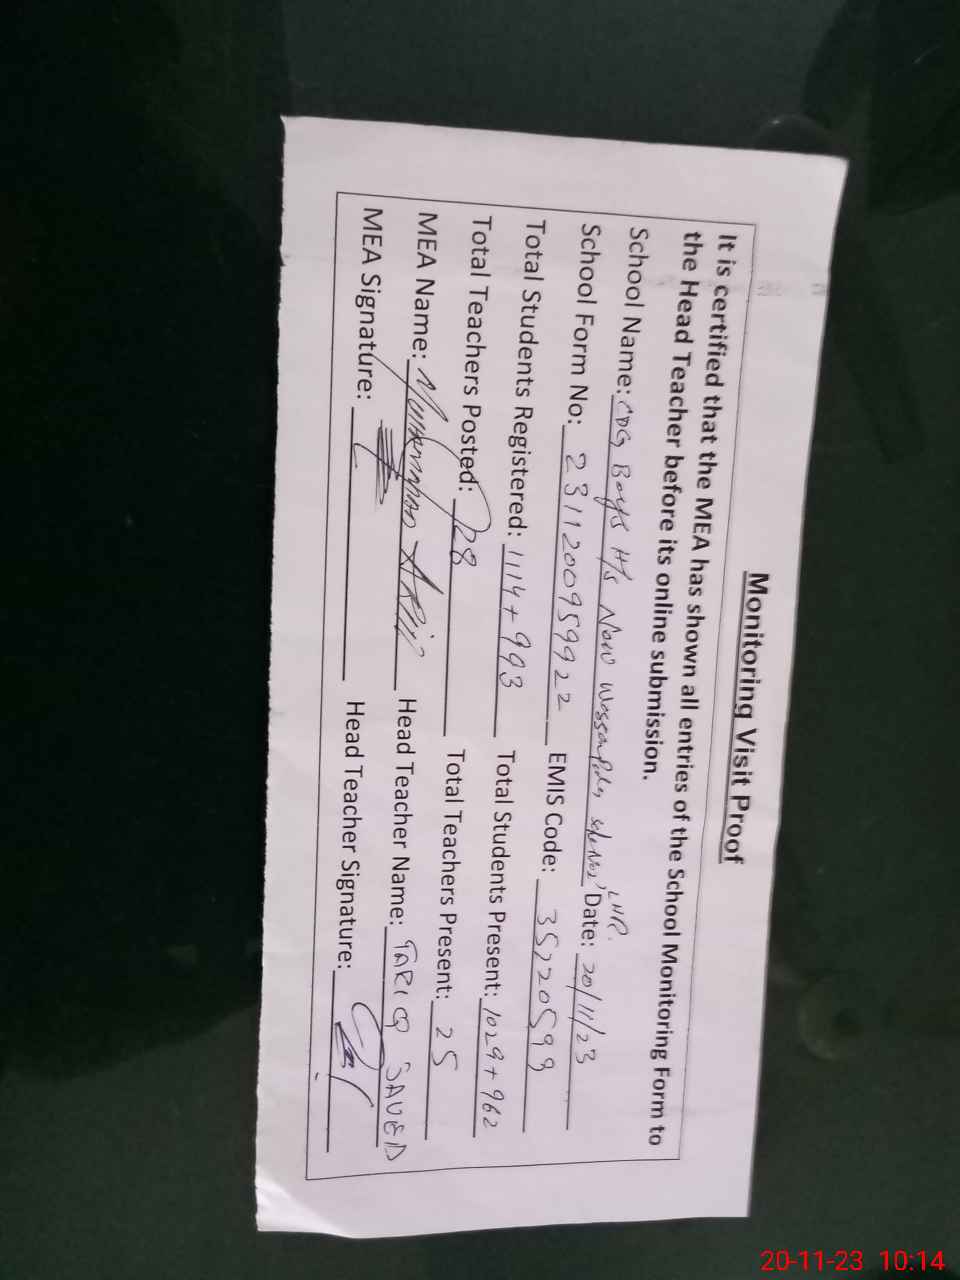 Monitoring Visit Proof
It is certified that the MEA has shown all entries of the School Monitoring Form to
the Head Teacher before its online submission.
School Name: CDG Boys H/S New Wassanpura scheme No 2, LHR. Date: 20/11/23
School Form No: 2311200959922 EMIS Code: 35220599
Total Students Registered: 1114+993 Total Students Present: 1029+962
Total Teachers Posted: 28 Total Teachers Present: 25
MEA Name: Muhammad Arif Head Teacher Name: TARIQ JAVED
MEA Signature: Head Teacher Signature:
20-11-23 10:14